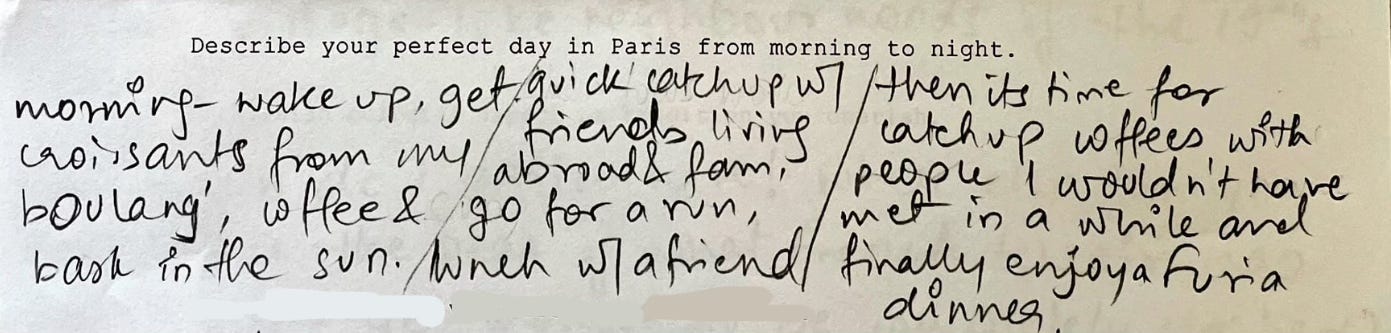 Describe your perfect day in Paris from morning to night.
morning- wake up, get
croissants from my
boulang', coffee &
bask in the sun.
quick catchup w/
friends living
abroad & fam,
go for a run,
lunch w/ a friend
then its time for
catchup coffees with
people I wouldn't have
met in a while and
finally enjoy a Furia
dinner.